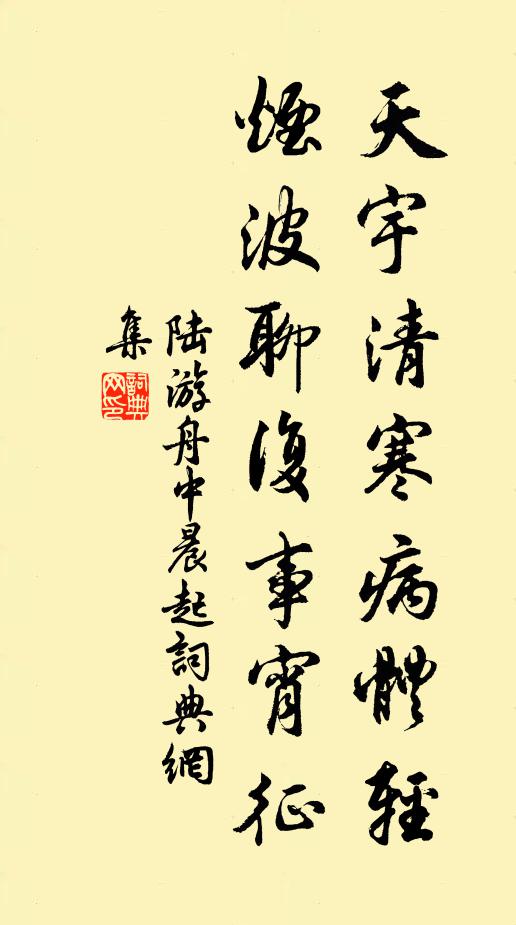 天宇清寒病體輕
煙波聊復事宵征
陸游舟中晨起詞典網
集
詞典
网印